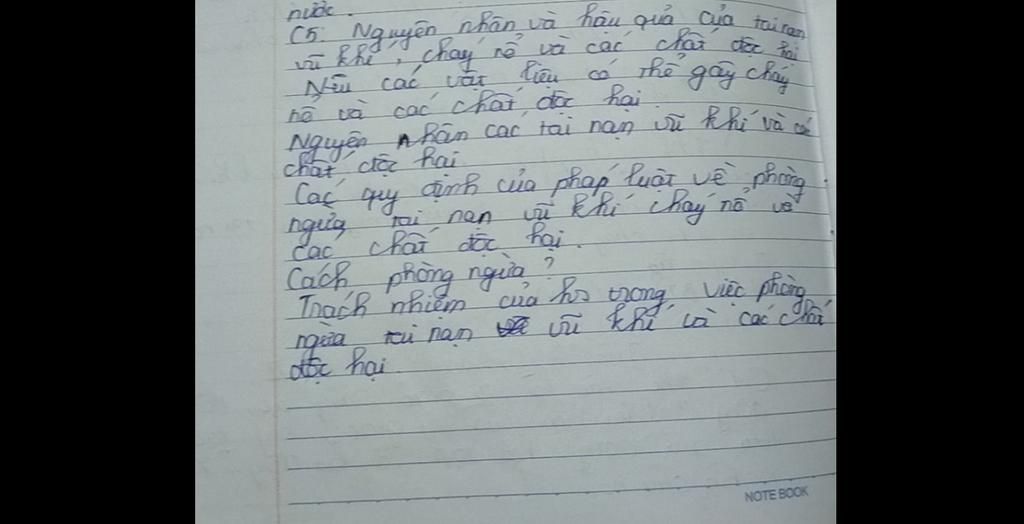 nước.
C5: Nguyên nhân và hậu quả của tai nạn
vũ khí, cháy nổ và các chất độc hại
Nêu các vật liệu có thể gây cháy
nổ và các chất độc hại.
Nguyên nhân các tai nạn vũ khí và các
chất độc hại
Các quy định của pháp luật về phòng
ngừa tai nạn vũ khí cháy nổ về
các chất độc hại.
Cách phòng ngừa?
Trách nhiệm của hs trong việc phòng
ngừa tai nạn vũ khí và các chất
độc hại.
NOTE BOOK